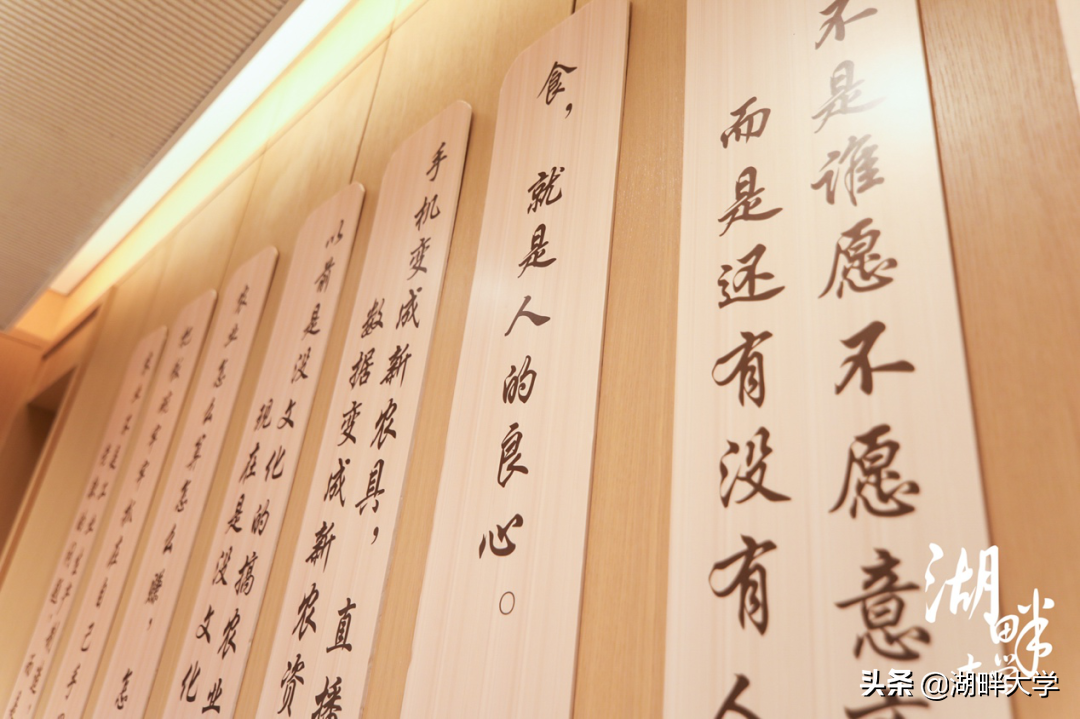 不是谁愿不愿意
而是还有没有人
食，就是人的良心。
手机变成新农具，直播
数据变成新农资
以前是没文化的搞农业
现在是没文化
农业怎么算怎么赚，怎
把饭碗牢牢抓在自己手
湖畔
大学
头条 @湖畔大学